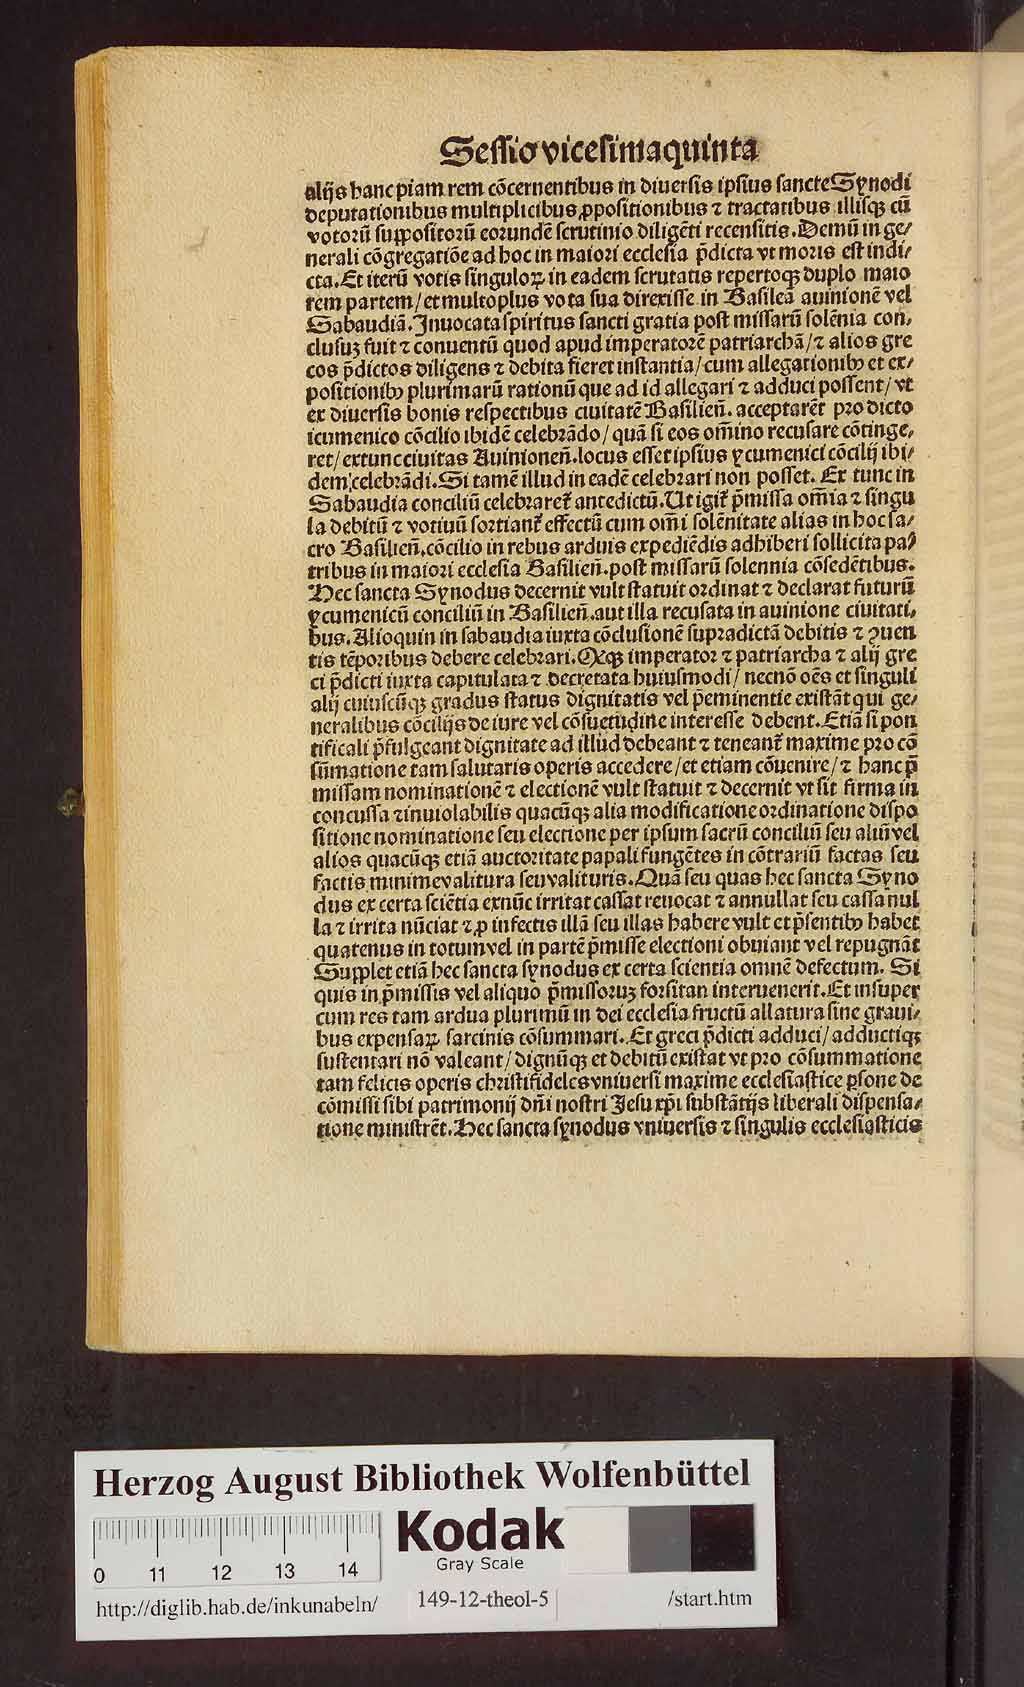 Sessio vicesimaquinta
alijs hanc piam rem cōcernentibus in diuersis ipsius sancte Synodi
deputationibus multiplicibus ꝓpositionibus ⁊ tractatibus illisqꝫ cū
votorū suppositorū eorundē scrutinio diligēti recensitis. Demū in ge⸗
nerali cōgregatiōe ad hoc in maiori ecclesia p̄dicta vt moris est indi⸗
cta. Et iterū votis singuloꝝ in eadem scrutatis repertoqꝫ duplo maio
rem partem/ et multoplus vota sua direxisse in Basileā auinionē vel
Sabaudiā. Inuocata spiritus sancti gratia post missarū solēnia con⸗
clusuꝫ fuit ⁊ conuentū quod apud imperatorē patriarchā/ ⁊ alios gre
cos p̄dictos diligens ⁊ debita fieret instantia/ cum allegationibꝰ et ex⸗
positionibꝰ plurimarū rationū que ad id allegari ⁊ adduci possent/ vt
ex diuersis bonis respectibus ciuitatē Basilien̄. acceptarēt pro dicto
icumenico cōcilio ibidē celebrādo/ quā si eos om̄ino recusare cōtinge⸗
ret/ extunc ciuitas Auinionen̄. locus esset ipsius ycumenici cōcilij ibi⸗
dem celebrādi. Si tamē illud in eadē celebrari non posset. Ex tunc in
Sabaudia conciliū celebraret᷑ antedictū. Ut igit᷑ p̄missa om̄ia ⁊ singu
la debitū ⁊ votiuū sortiant᷑ effectū cum om̄i solēnitate alias in hoc sa⸗
cro Basilien̄. cōcilio in rebus arduis expediēdis adhiberi sollicita pa⸗
tribus in maiori ecclesia Basilien̄. post missarū solennia cōsedētibus.
Hec sancta Synodus decernit vult statuit ordinat ⁊ declarat futurū
ycumenicū conciliū in Basilien̄. aut illa recusata in auinione ciuitati⸗
bus. Alioquin in sabaudia iuxta cōclusionē supradictā debitis ⁊ ꝯuen
tis tēporibus debere celebrari. Qꝫqꝫ imperator ⁊ patriarcha ⁊ alij gre
ci p̄dicti iuxta capitulata ⁊ decretata huiusmodi/ necnō oēs et singuli
alij cuiuscūqꝫ gradus status dignitatis vel p̄eminentie existāt qui ge⸗
neralibus cōcilijs de iure vel cōsuetudine interesse debent. Etiā si pon
tificali p̄fulgeant dignitate ad illud debeant ⁊ teneant᷑ maxime pro cō
sūmatione tam salutaris operis accedere/ et etiam cōuenire/ ⁊ hanc p̄
missam nominationē ⁊ electionē vult statuit ⁊ decernit vt sit firma in
concussa ⁊ inuiolabilis quacūqꝫ alia modificatione ordinatione dispo
sitione nominatione seu electione per ipsum sacrū conciliū seu aliū vel
alios quacūqꝫ etiā auctoritate papali fungētes in cōtrariū factas seu
factis minime valitura seu valituris. Quā seu quas hec sancta Syno
dus ex certa sciētia exnūc irritat cassat reuocat ⁊ annullat seu cassa nul
la ⁊ irrita nūciat ⁊ ꝓ infectis illā seu illas habere vult et p̄sentibꝰ habet
quatenus in totum vel in partē p̄misse electioni obuiant vel repugnāt
Supplet etiā hec sancta synodus ex certa scientia omnē defectum. Si
quis in p̄missis vel aliquo p̄missoruꝫ forsitan interuenerit. Et insuper
cum res tam ardua plurimū in dei ecclesia fructū allatura sine graui⸗
bus expensaꝝ sarcinis cōsummari. Et greci p̄dicti adduci/ adductiqꝫ
sustentari nō valeant/ dignūqꝫ et debitū existat vt pro cōsummatione
tam felicis operis christifideles vniuersi maxime ecclesiastice ꝑsone de
cōmissi sibi patrimonij dn̄i nostri Jesu xp̄i substātijs liberali dispensa⸗
tione ministrēt. Hec sancta synodus vniuersis ⁊ singulis ecclesiasticis
Herzog August Bibliothek Wolfenbüttel
Kodak
Gray Scale
0 11 12 13 14
http://diglib.hab.de/inkunabeln/ 149-12-theol-5 /start.htm